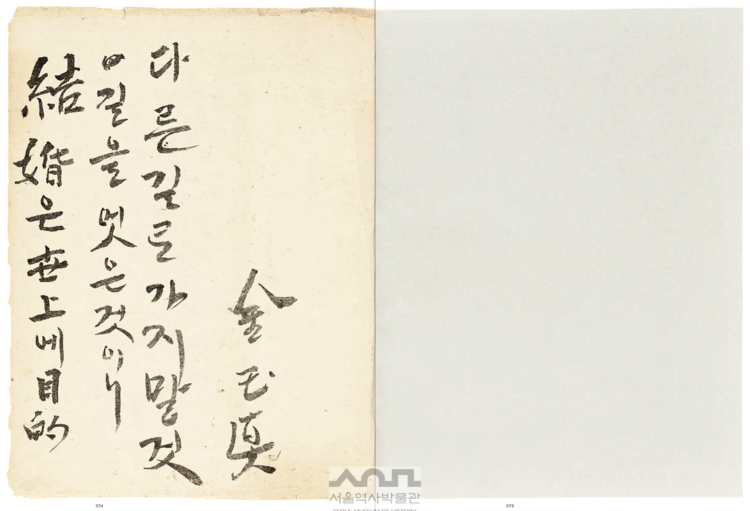 結婚은世上에目的
이길을멋은것이니
다른길로가지말것
金玉眞
서울역사박물관
SEOUL MUSEUM OF HISTORY
074
075